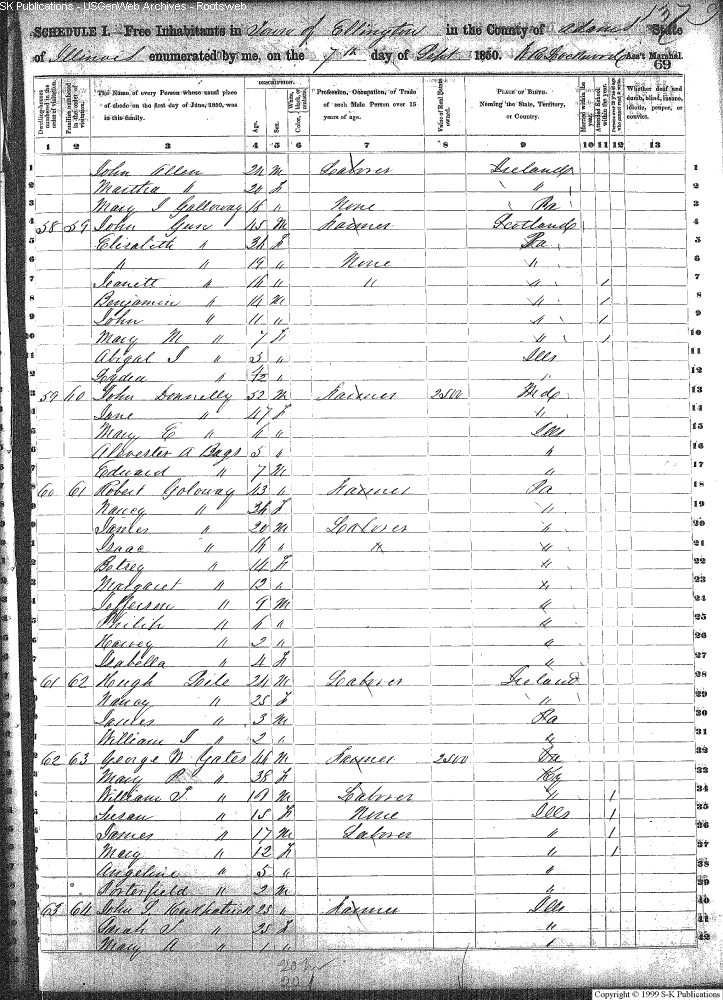 SK Publications - USGenWeb Archives - Rootsweb
137
SCHEDULE I. Free Inhabitants in Town of Ellington in the County of Adams State
of Illinois enumerated by me, on the 7th day of Sept 1850. Ass't Marshal.
69
Dwelling-houses numbered in the order of visitation.
Families numbered in the order of visitation.
The Name of every Person whose usual place of abode on the first day of June, 1850, was in this family.
DESCRIPTION.
Age.
Sex.
Color, White, black, or mulatto.
Profession, Occupation, or Trade of each Male Person over 15 years of age.
Value of Real Estate owned.
PLACE OF BIRTH. Naming the State, Territory, or Country.
Married within the year.
Attended School within the year.
Persons over 20 y'rs of age who cannot read & write.
Whether deaf and dumb, blind, insane, idiotic, pauper, or convict.
1 2 3 4 5 6 7 8 9 10 11 12 13
1 John Allen 24 M Laborer Ireland 1
2 Martha " 24 F " 2
3 Mary J Galloway 16 " None Pa 3
4 58 59 John Gun 45 M Farmer Scotland 4
5 Elisabeth " 36 F Pa 5
6 " " 19 " None " 6
7 Jeanett " 16 " " " 1 7
8 Benjamin " 14 M " 1 8
9 John " 11 " " 1 9
10 Mary M " 7 F " 1 10
11 Abigal J " 3 " Ills 11
12 Lydia " /12 " " 12
13 59 60 John Donnelly 52 M Farmer 2500 Md 13
14 Jane " 47 F " 14
15 Mary E " 6 " Ills 15
16 A Bags 5 " " 16
17 Edward " 7 M " 17
18 60 61 Robert Goloway 43 " Farmer Pa 18
19 Nancy " 36 F " 19
20 James " 20 M Laborer " 20
21 Isaac " 16 " " " 21
22 Betsey " 14 F " 22
23 Margaret " 12 " " 23
24 Jefferson " 9 M " 24
25 Philip " 6 " " 25
26 Harvey " 2 " " 26
27 Isabella " 4 F " 27
28 61 62 Hugh 24 M Laborer Ireland 28
29 Nancy " 25 F " 29
30 James " 3 M Pa 30
31 William J " 2 " " 31
32 62 63 George W Yates 46 M Farmer 2500 Va 32
33 Mary P " 38 F Ky 33
34 William T " 19 M Laborer " 1 34
35 Susan " 15 F None Ills 1 35
36 James " 17 M Laborer " 1 36
37 Mary " 12 F " 1 37
38 Angeline " 5 " " 38
39 Porterfield " 2 M " 39
40 63 64 John T Kirkpatrick 25 " Farmer Ills 40
41 Sarah T " 25 F " 41
42 Mary A " 1 " " 42
Copyright © 1999 S-K Publications